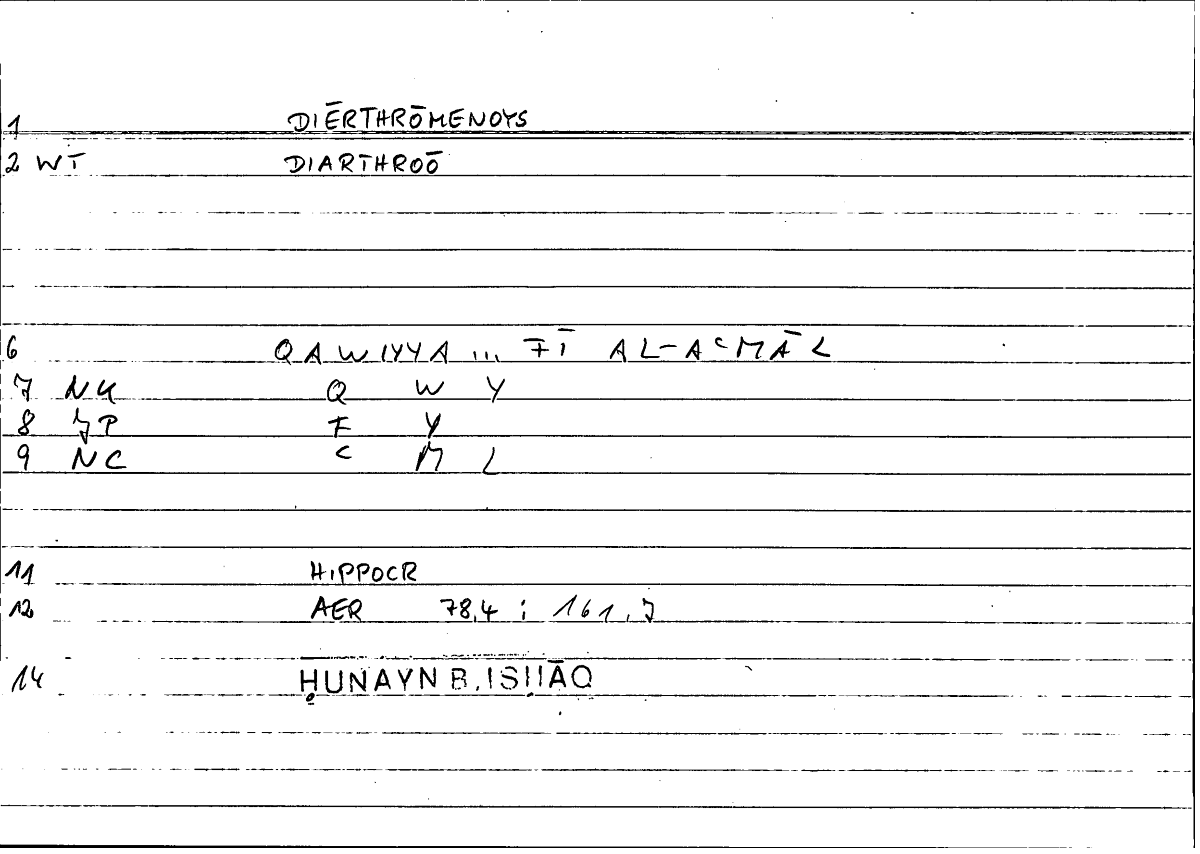 1 DIĒRTHRŌMENOYS
2 WT DIARTHROŌ
6 QAWIYYA ... FĪ AL-AʿMĀL
7 NK Q W Y
8 JP F Y
9 NC ʿ M L
11 HIPPOCR
12 AER 78,4 ; 161,7
14 ḤUNAYN B. ISḤĀQ